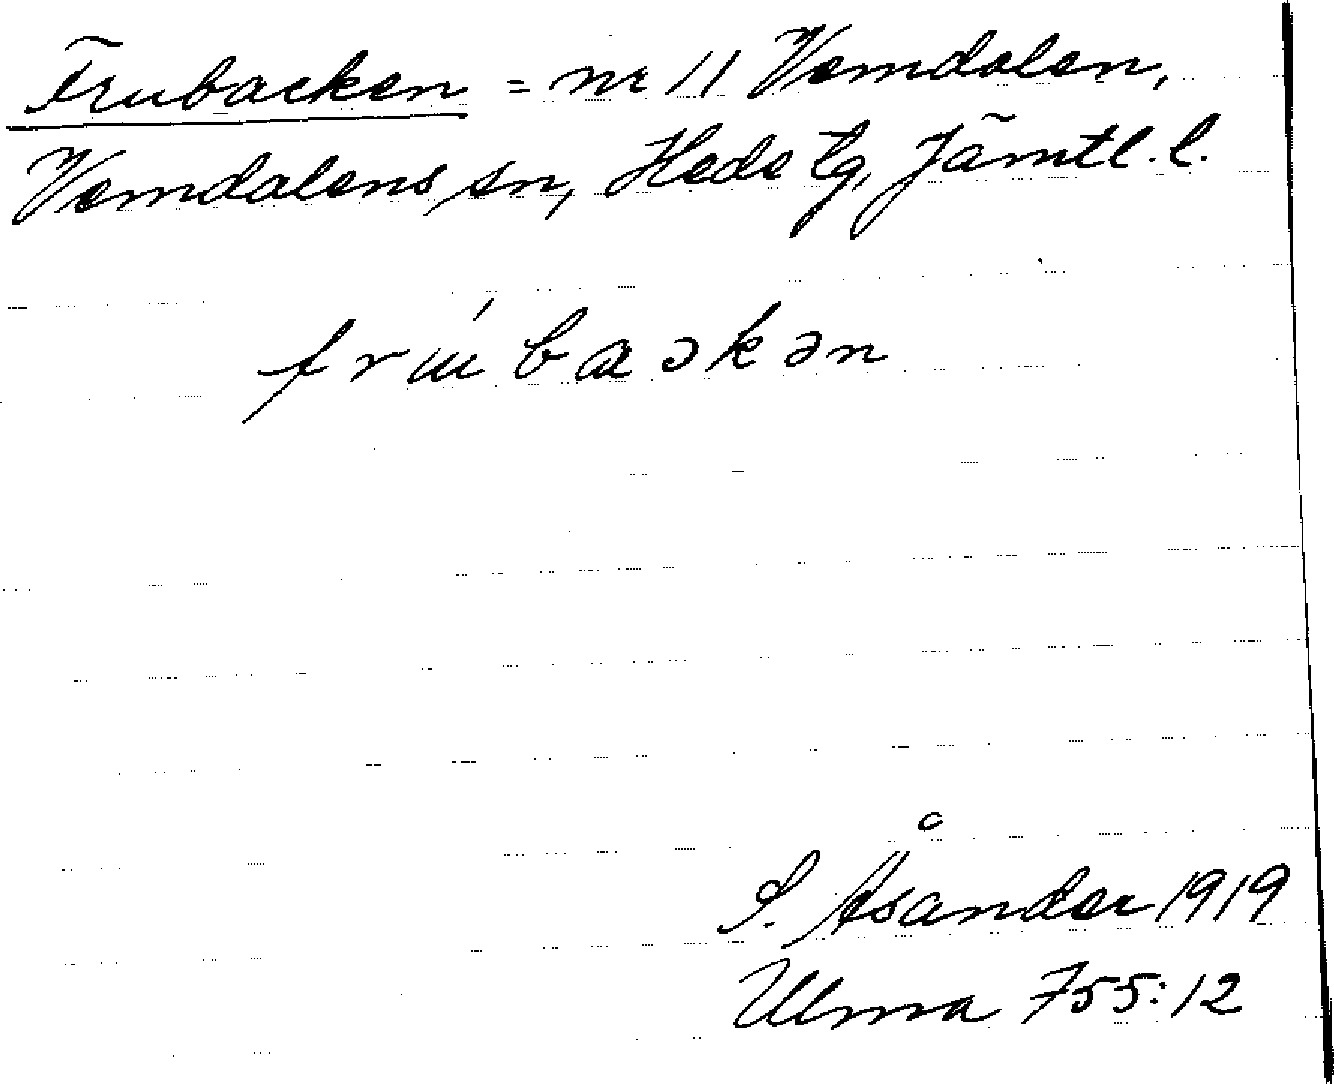 Frubacken = nr 11 Vemdalen,
Vemdalens sn, Heds tg, Jämtl. l.
frúbaəkən
S. Åsander 1919
Ulma 755:12